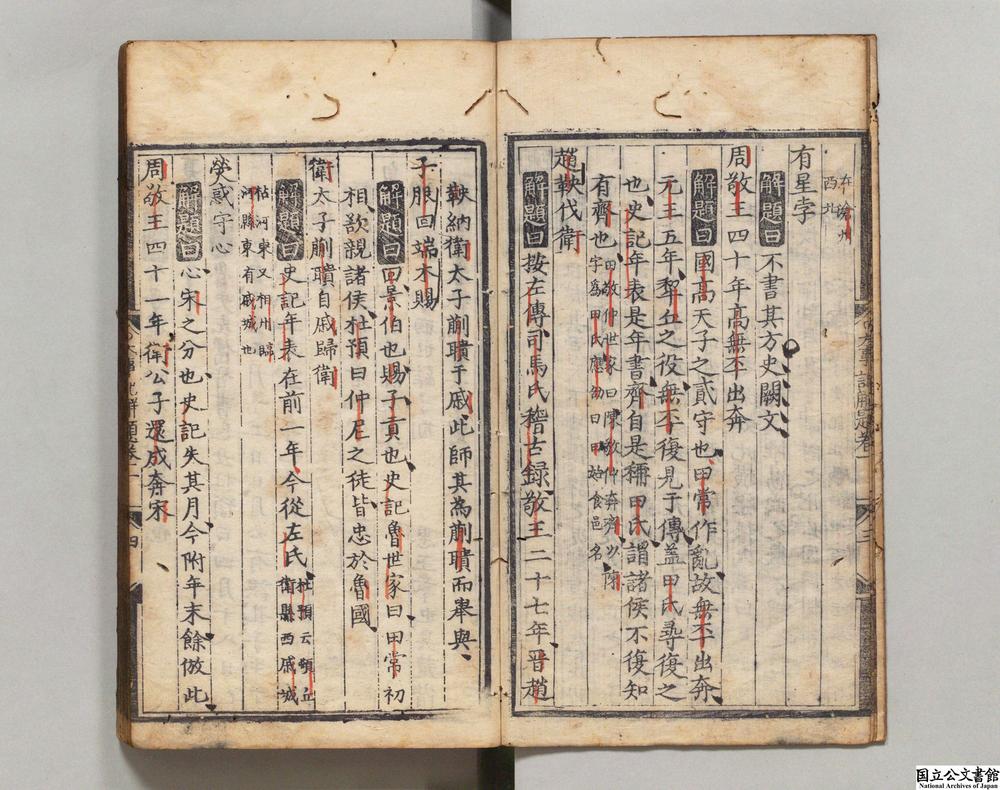 在滄州
西北
有星孛
解題曰不書其方史闕文
周敬王四十年高無丕出奔
解題曰國高天子之貳守也田常作亂故無丕出奔
元王五年犂丘之役無丕復見于傳盖田氏尋復之
也史記年表是年書齊自是稱田氏謂諸侯不復知
有齊也田敬仲世家曰陳敬仲奔齊以陳
字為田氏應劭曰田始食邑名
趙鞅伐衛
解題曰按左傳司馬氏稽古録敬王二十七年晉趙
鞅納衛太子蒯聵于戚此師其為蒯聵而舉與
子服回端木賜
解題曰回景伯也賜子貢也史記魯世家曰田常初
相欲親諸侯杜預曰仲尼之徒皆忠於魯國
衛太子蒯聵自戚歸衛
解題曰史記年表在前一年今從左氏杜預云頓丘
衛縣西戚城
枯河東又相州臨
河縣東有戚城也
熒惑守心
解題曰心宋之分也史記失其月今附年末餘倣此
周敬王四十一年衛公子還成奔宋
国立公文書館
National Archives of Japan